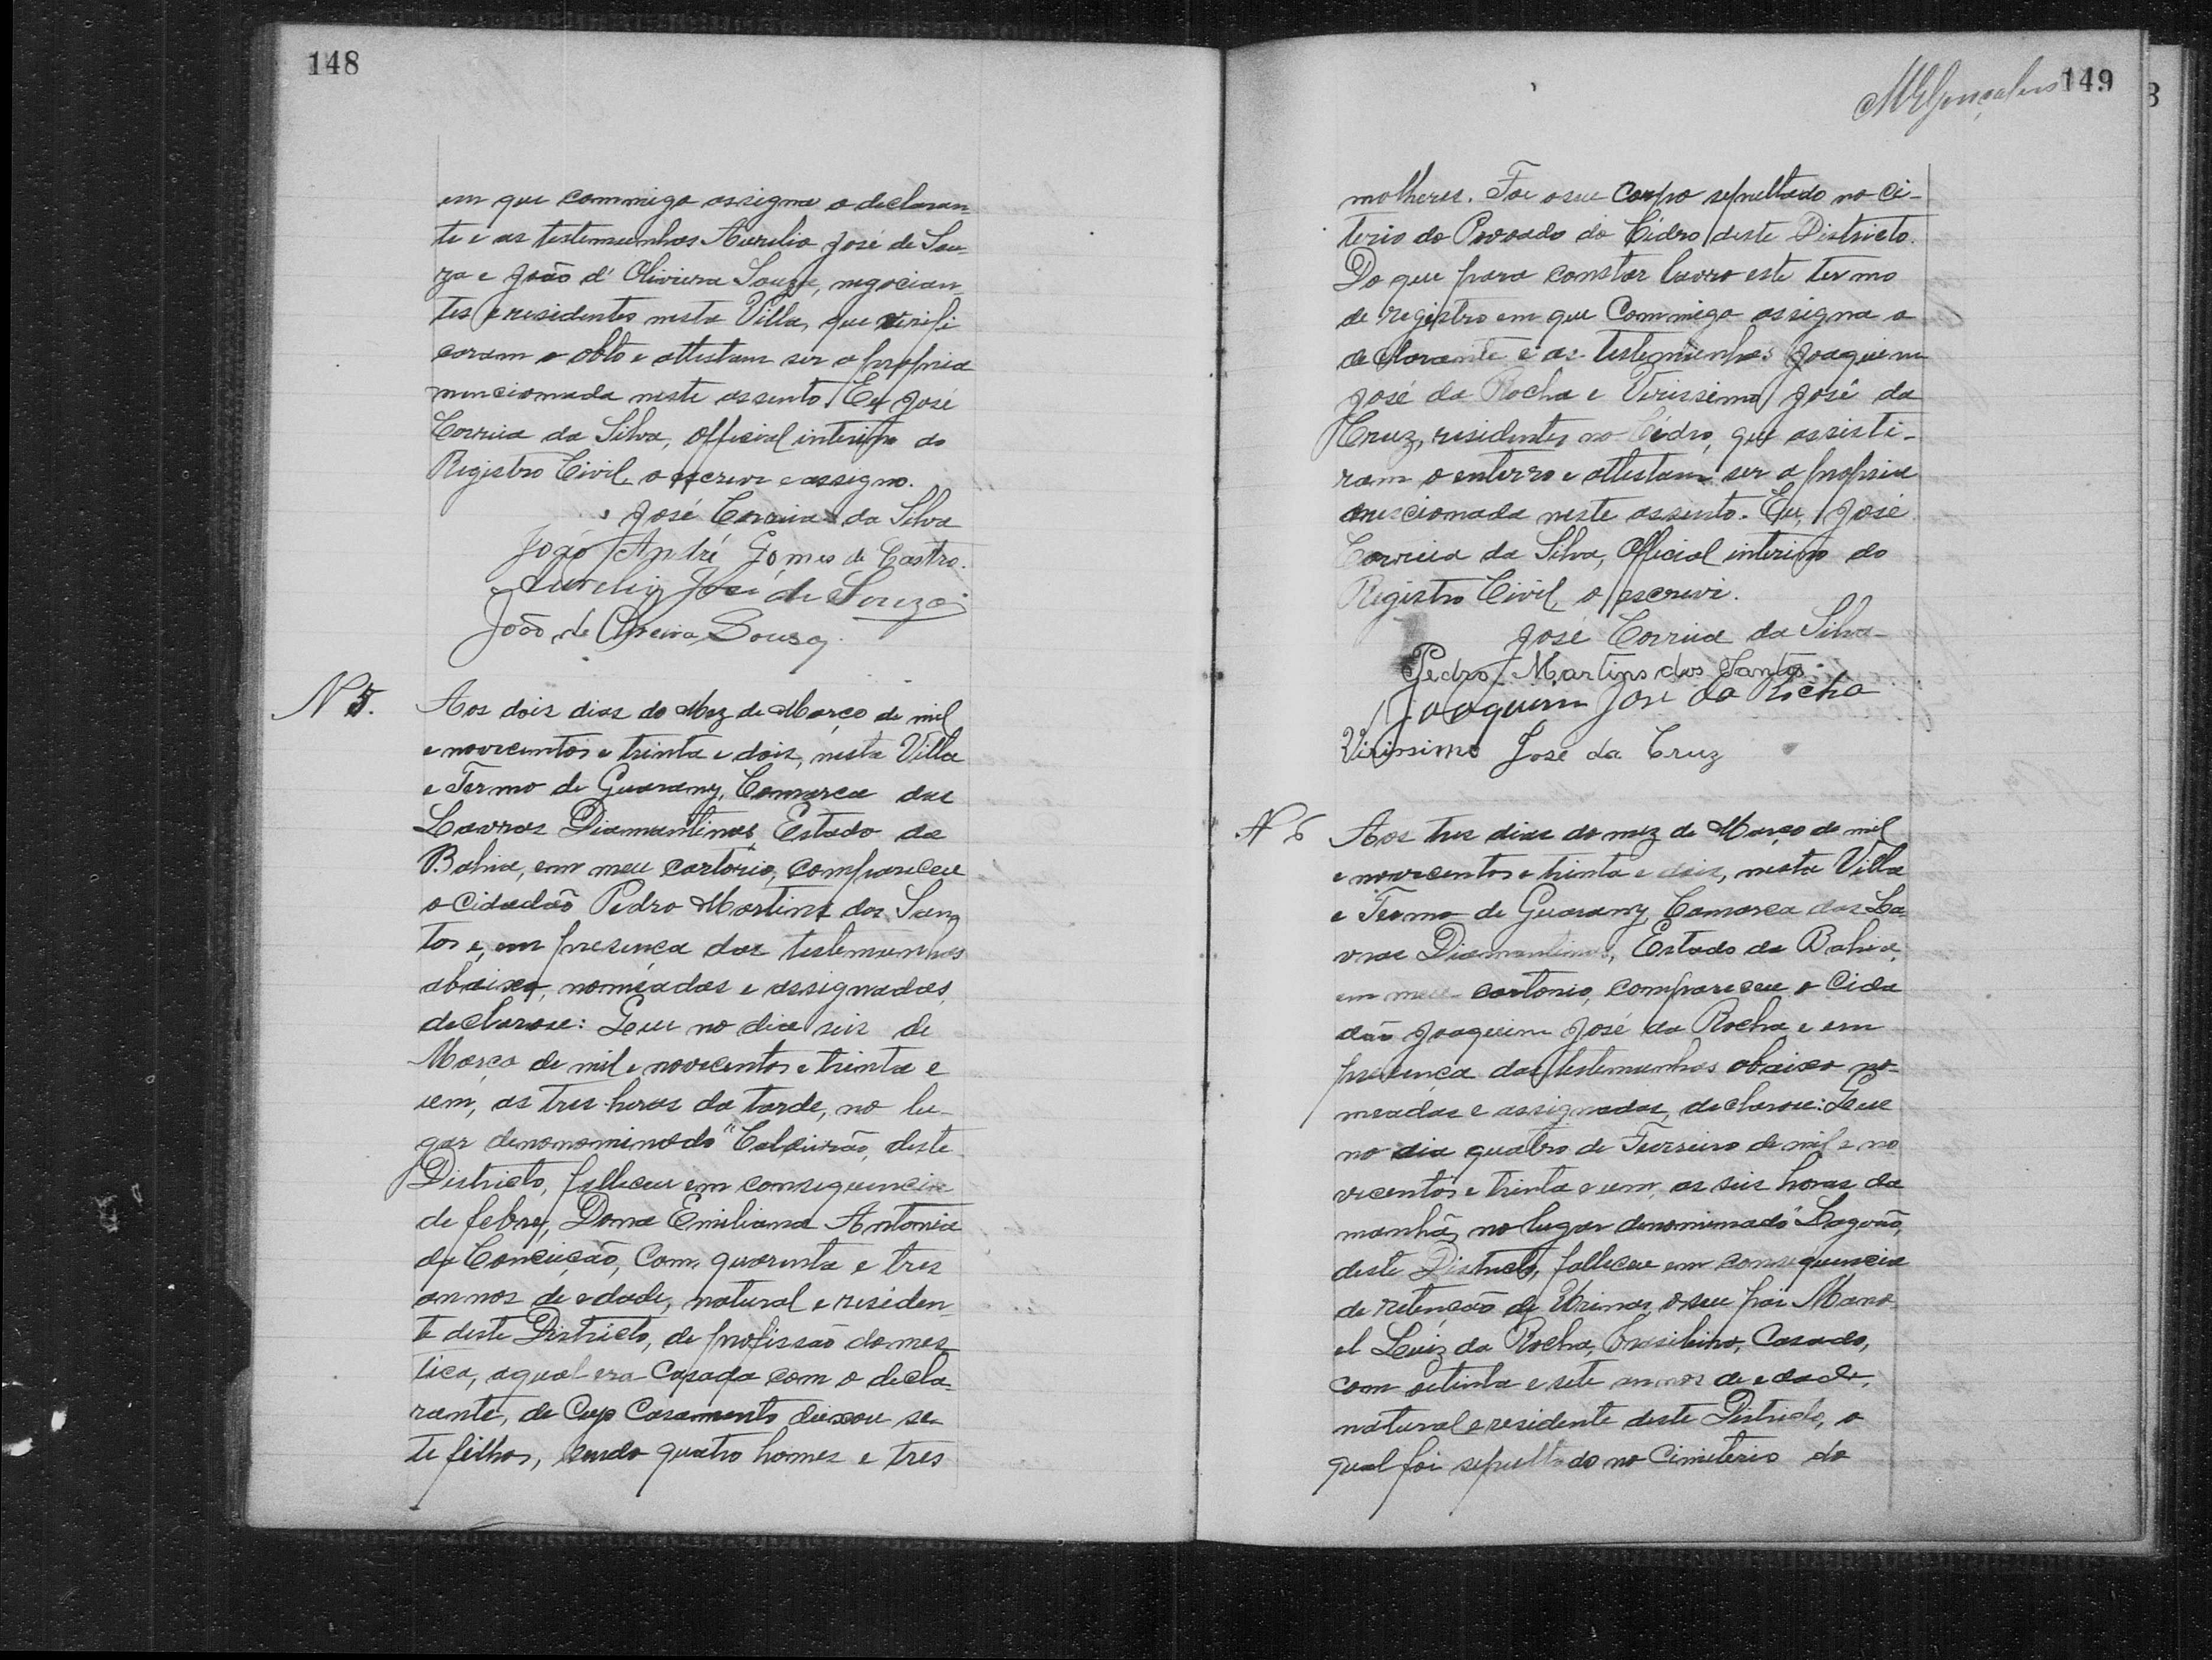 148
em que commigo assigna o declaran-
te e as testemunhas Aurelio José de Sou-
za e João d'Oliviera Souza, negocian-
tes e residentes nesta Villa, que verifi
caram o obto e attestam ser a propria
mencionada neste assento. Eu José
Correia da Silva, official interino do
Registro Civil, o escrevi e assigno.
José Correia da Silva
João André Gomes de Castro.
Aurelio José de Souza
João de Oliveira Sousa.
N 5. Aos dois dias do Mez de Março de mil
e novecentos e trinta e dois, nesta Villa
e Termo de Guarany, Comarca das
Lavras Diamantinas Estado da
Bahia, em meu cartorio, compareceu
o cidadão Pedro Martins dos San
tos e, em presença das testemunhas
abaixo, nomeadas e assignadas,
declarou: Que no dia seis de
Março de mil e novecentos e trinta e
um, as tres horas da tarde, no lu-
gar denonominado "Caldeirão, deste
Districto, falleceu em consequencia
de febre, Dona Emiliana Antonia
da Conceição, Com quarenta e tres
annos de edade, natural e residen-
te deste Districto, de profissão domes
tica, aqual era Casada com o decla-
rante, de Cujo Casamento deixou se-
te filhos, sendo quatro homes e tres
149
MEGonçalves
molheres. Foi o seu Corpo sepultado no Ci-
terio do Povoado do Cédro deste Districto.
Do que para constar lavro este termo
de registro em que Commigo assigna o
declarante e as testemunhas Joaquim
José da Rocha e Verissimo José da
Cruz, residentes no Cédro, que assisti-
ram o enterro e attestam ser a propria
mencionada neste assento. Eu, José
Correia da Silva, Official interino do
Registro Civil, o escrevi.
José Correia da Silva
Pedro Martins dos Santos
Joaquim José da Rocha
Virissimo José da Cruz
N 6 Aos tres dias do mez de Março de mil
e novecentos e trinta e dois, nesta Villa
e Termo de Guarany, Comarca das La
vras Diamantinas, Estado da Bahia,
em meu cartorio, compareceu o Cida
dão Joaquim José da Rocha e em
presença das testemunhas abaixo no-
meadas e assignadas, declarou: Que
no dia quatro de Fevreiro de mil e no
vecentos e trinta e um, as seis horas da
manhã, no lugar denominado "Lagoão,
deste Districto, falleceu em consequencia
de retenção de Urinas, o seu pai Mano
el Luiz da Rocha, brasileiro, Casado,
com setenta e sete annos de edade,
natural e residente deste Districto, o
qual foi sepultado no Cimeterio do